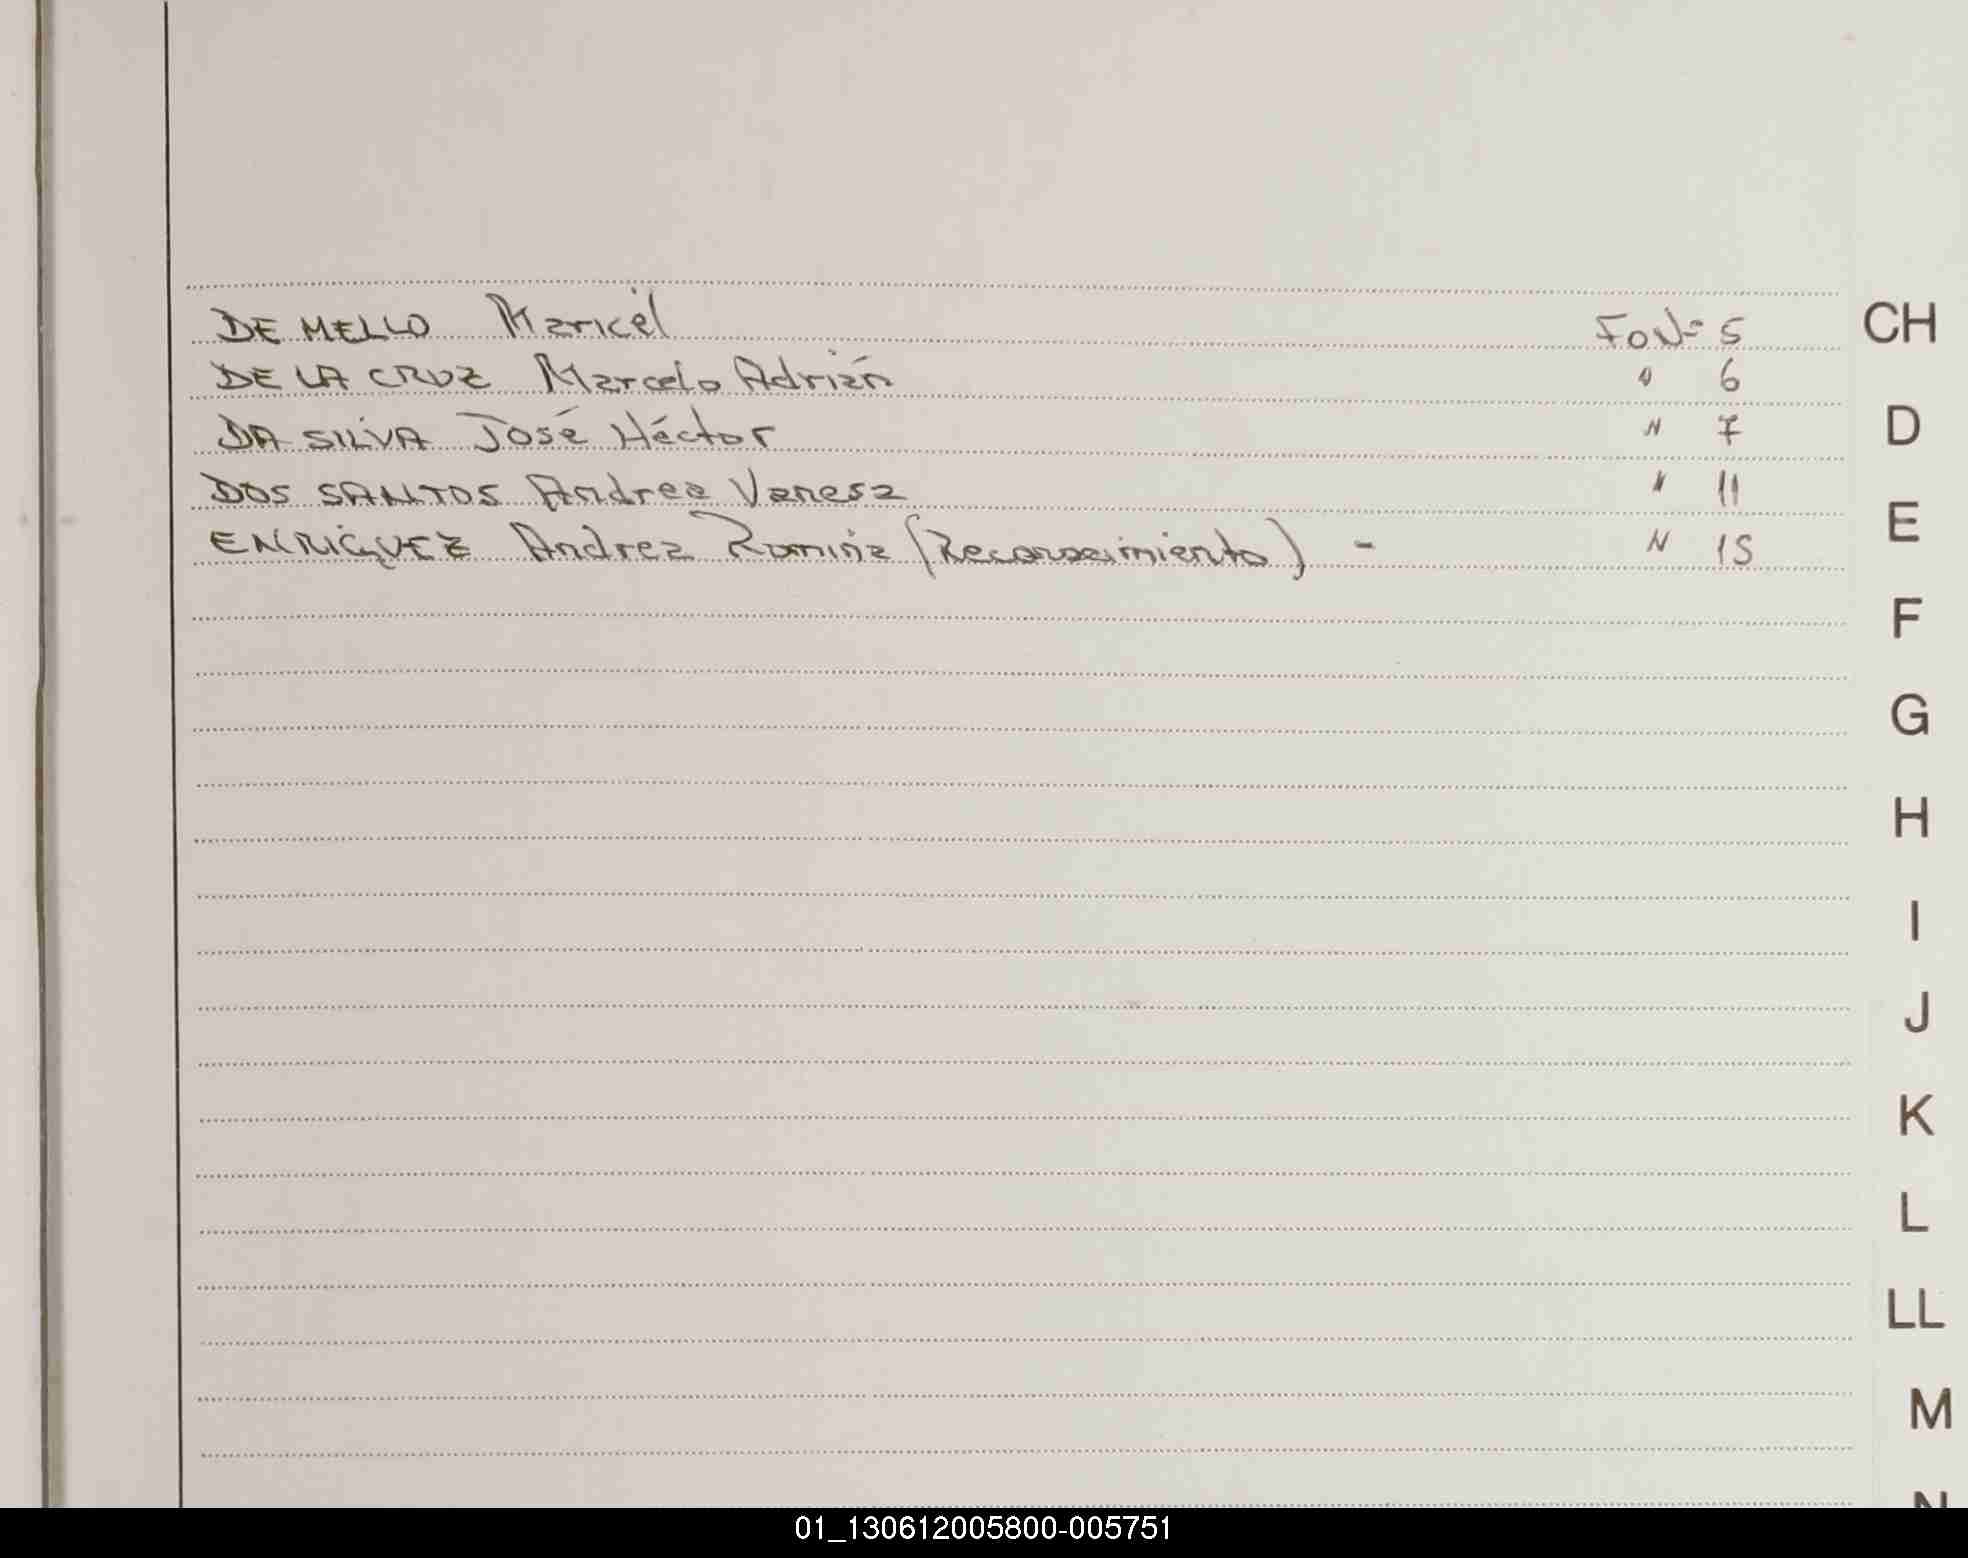 DE MELLO Maricel Fo Nº 5
DE LA CRUZ Marcelo Adrián " 6
DA SILVA José Héctor " 7
DOS SANTOS Andrea Vanesa " 11
ENRIQUEZ Andrea Romina (Reconocimiento) - " 15
CH
D
E
F
G
H
I
J
K
L
LL
M
N
01_130612005800-005751